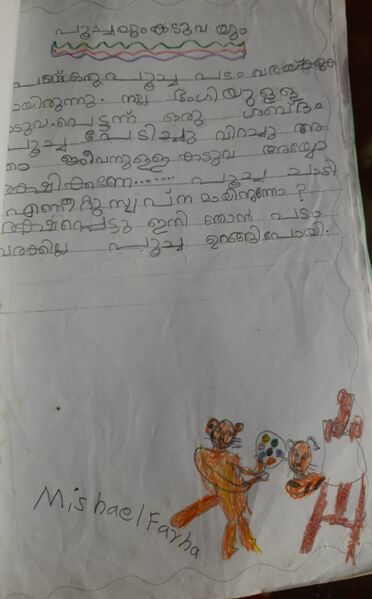 പൂച്ചയും കടുവ യും
പണ്ട് ഒരു പൂച്ച പടം വരയ്ക്കുക
യായിരുന്നു. നല്ല ഭംഗിയുള്ള
കടുവ. പെട്ടന്ന് ഒരു ശബ്ദം
പൂച്ച പേടിച്ചു വിറച്ചു അ
താ ജീവനുള്ള കടുവ അയ്യോ
രക്ഷിക്കണേ........ പൂച്ച ചാടി
എണീറ്റു സ്വപ്ന മായിരുന്നോ?
രക്ഷപ്പെട്ടു ഇനി ഞാൻ പടം
വരക്കില്ല പൂച്ച ഉറങ്ങിപോയി.
Mishael Farha